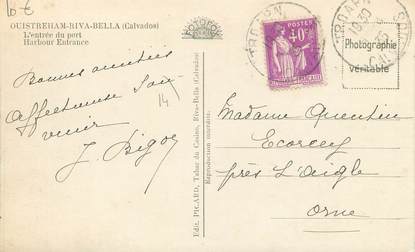 10 €
OUISTREHAM-RIVA-BELLA (Calvados)
L'entrée du port
Harbour Entrance
Bonnes amitiés
Affectueux Sou-
venir
14
J. Bigot
Edit. PICARD, Tabac du Casino, Riva-Bella (Calvados)
Reproduction interdite.
POSTES
40c
Photographie
véritable
Madame Quentin
Ecorcey
près L'Aigle
Orne